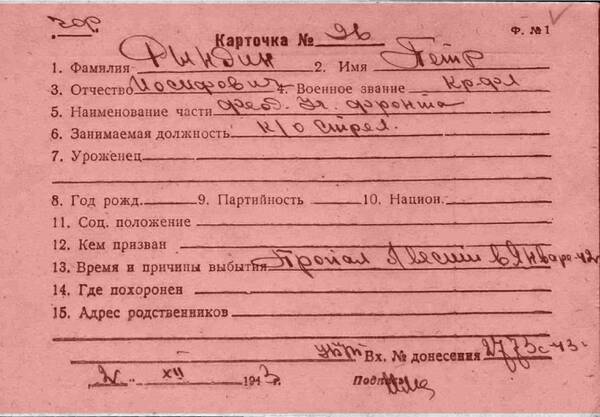 Карточка № 26 Ф. № 1
1. Фамилия Рындин 2. Имя Петр
3. Отчество Иосифович 4. Военное звание кр-фл
5. Наименование части фронта
6. Занимаемая должность к/о стрел.
7. Уроженец
8. Год рожд. 9. Партийность 10. Национ.
11. Соц. положение
12. Кем призван
13. Время и причины выбытия Пропал без вести в январе 42
14. Где похоронен
15. Адрес родственников
Вх. № донесения 2773с-43
2. XII 1943г. Подпись